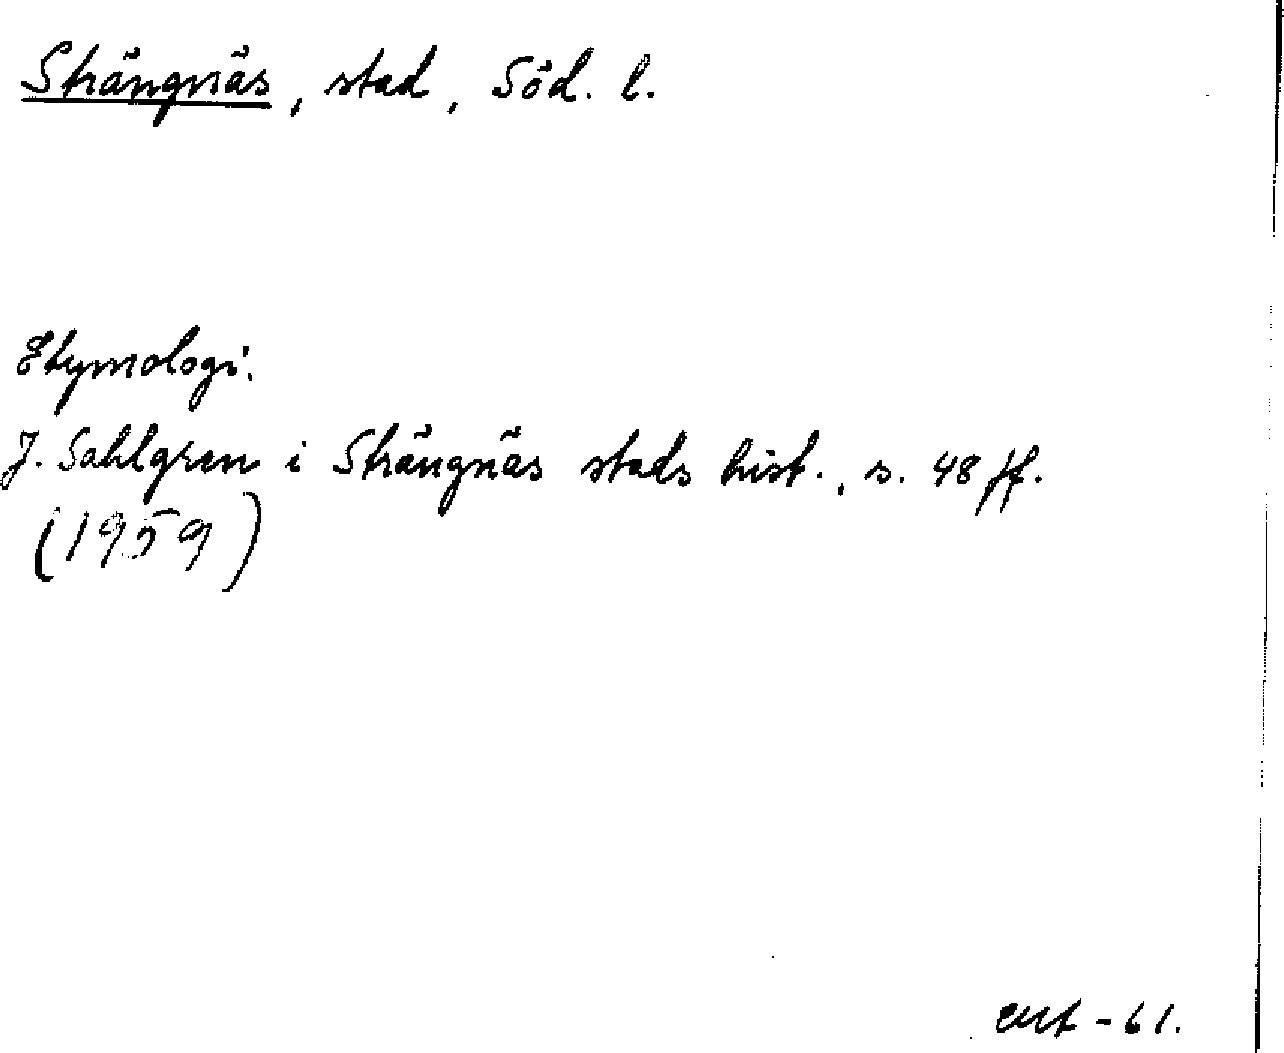 Strängnäs, stad, Söd. l.
Etymologi.
J. Sahlgren i Strängnäs stads hist., s. 48 ff.
(1959)
-61.